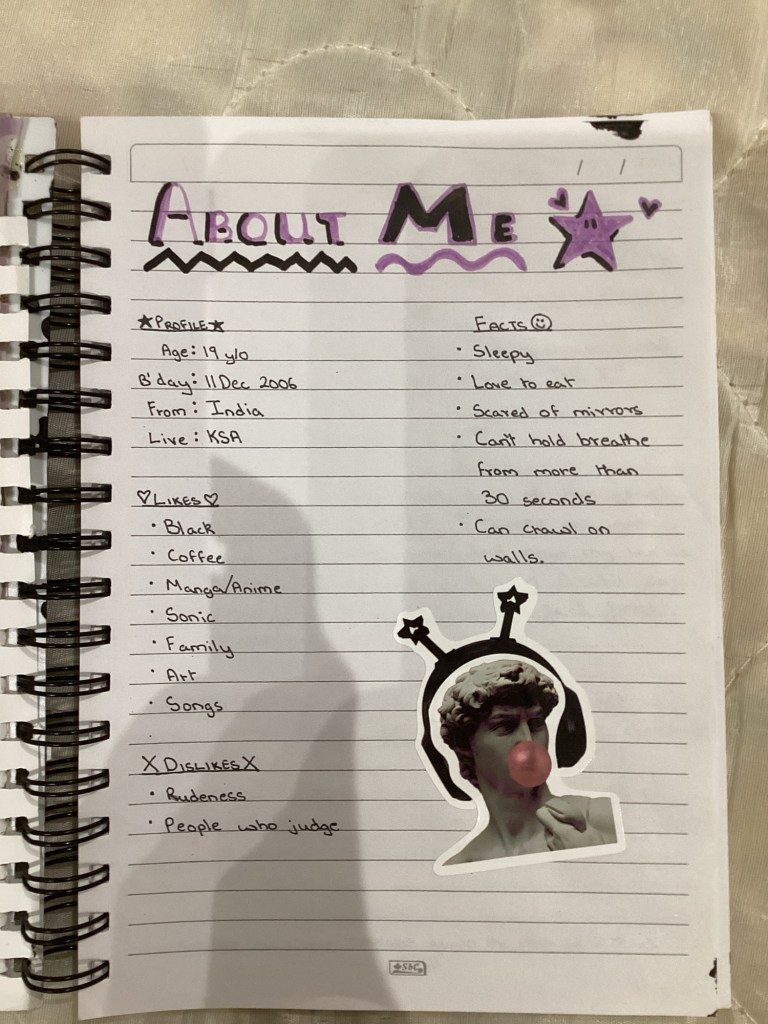 / /
ABOUT ME
★PROFILE★
Age: 19 y/o
B'day: 11 Dec 2006
From: India
Live: KSA
♡LIKES♡
· Black
· Coffee
· Manga/Anime
· Sonic
· Family
· Art
· Songs
X DISLIKES X
· Rudeness
· People who judge
FACTS☺
· Sleepy
· Love to eat
· Scared of mirrors
· Can't hold breathe
from more than
30 seconds
· Can crawl on
walls.